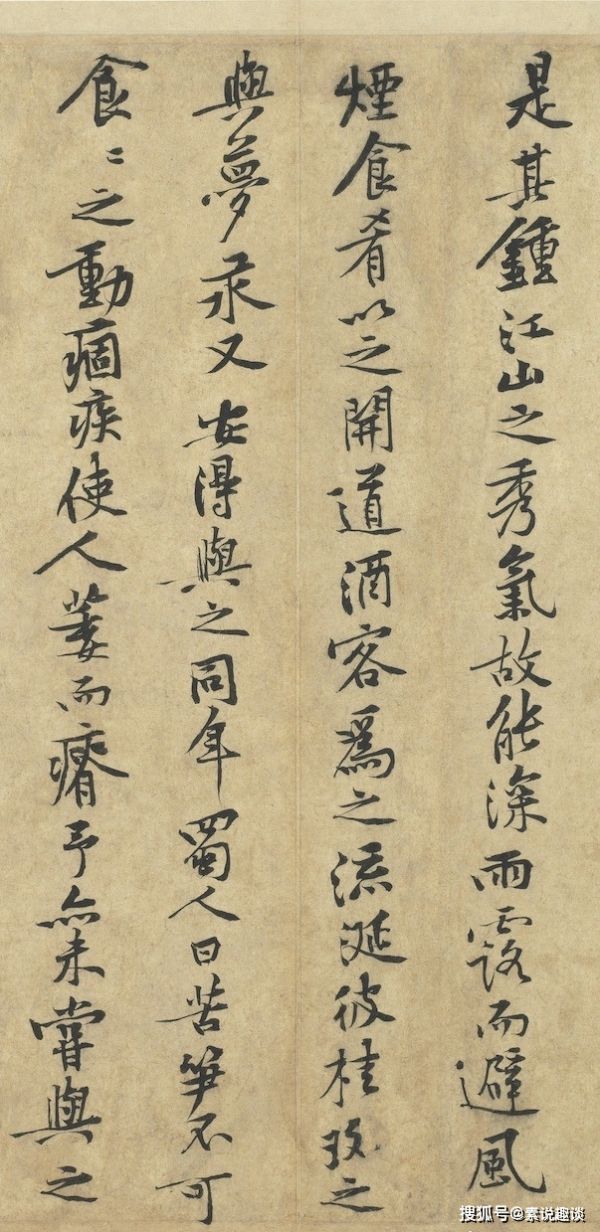 是其鍾江山之秀氣故能深雨露而避風
煙食肴以之開道酒客爲之流涎彼桂玫之
與夢汞又安得與之同年蜀人曰苦筍不可
食〻之動痼疾使人萎而瘠予亦未嘗與之
搜狐号@素说趣谈